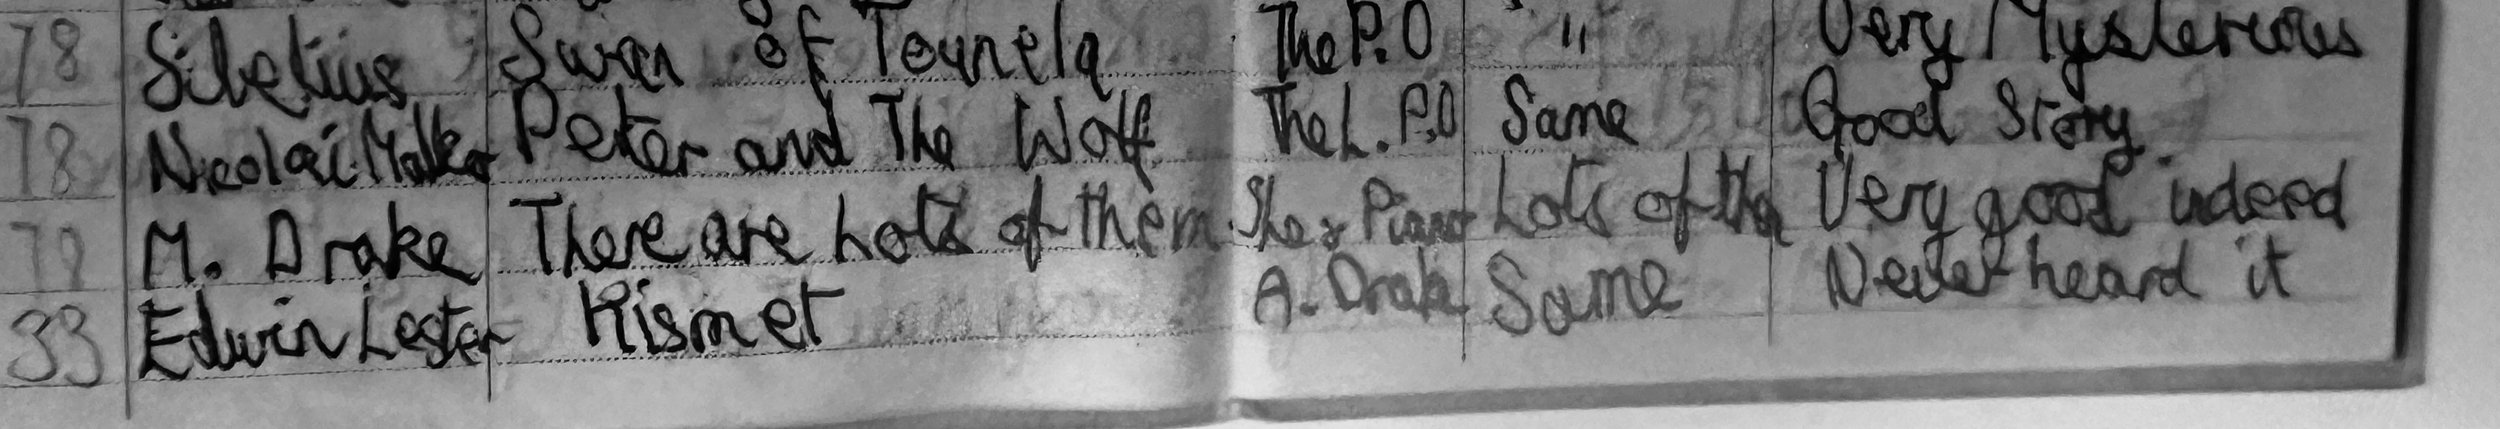 78 Sibelius Swan of Tounela The P.O " Very Mysterious
78 Nicolai Malko Peter and The Wolf The L.P.O Same Good Story
78 M. Drake There are Lots of them She & Piano Lots of them Very good indeed
33 Edwin Lester Kismet A. Drake Same Never heard it